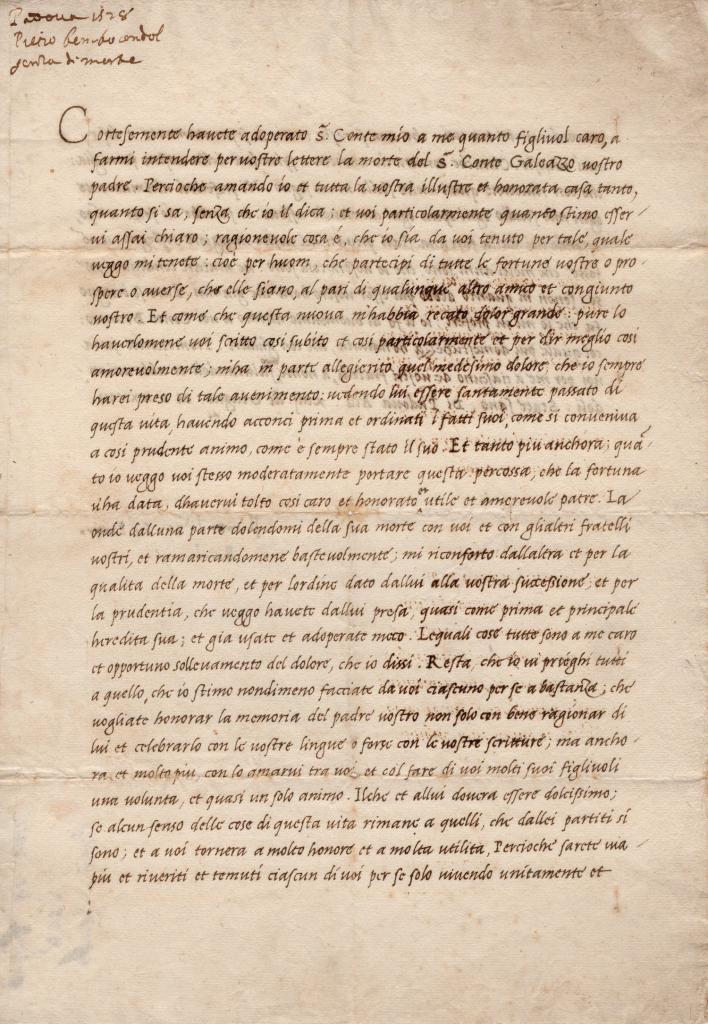 Padova 1528
Pietro bembo condol
senza di morte
Cortesemente havete adoperato S. Conte mio a me quanto figlivol caro, a
farmi intendere per vostre lettere la morte del S. Conte Galeazzo vostro
padre. Percioche amando io et tutta la vostra illustre et honorata casa tanto,
quanto si sa, senza che io il dica; et voi particolarmente quanto stimo esser-
vi assai chiaro; ragionevole cosa è, che io sia da voi tenuto per tale, quale
veggo mi tenete: cioè per huom, che partecipi di tutte le fortune vostre o pro-
spere o averse, che elle siano, al pari di qualunque altro amico et congiunto
vostro. Et come che questa nuova mihabbia recato dolor grande: pure lo
haverlomene voi scritto cosi subito et cosi particolarmente et per dir meglio cosi
amorevolmente; miha in parte allegierito quel medesimo dolore, che io sempre
harei preso di tale avenimento: vedendo lui essere santamente passato di
questa vita, havendo acconci prima et ordinati i fatti suoi, come si conveniva
a cosi prudente animo, come è sempre stato il suo. Et tanto piu anchora; quā-
to io veggo voi stesso moderatamente portare questa percossa, che la fortuna
viha data, dhavervi tolto cosi caro et honorato et utile et amorevole patre. La
onde dalluna parte dolendomi della sua morte con voi et con glialtri fratelli
vostri, et ramaricandomene bastevolmente; mi riconforto dallaltra et per la
qualita della morte, et per lordine dato dallui alla vostra successione, et per
la prudentia, che veggo havete dallui presa, quasi come prima et principale
heredita sua; et gia usate et adoperate meco. Lequali cose tutte sono a me caro
et opportuno sollevamento del dolore, che io dissi. Resta, che io vi prieghi tutti
a quello, che io stimo nondimeno facciate da voi ciascuno per se a bastanza; che
vogliate honorar la memoria del padre vostro non solo con bene ragionar di
lui et celebrarlo con le vostre lingue o forse con le vostre scritture; ma ancho-
ra et molto piu, con lo amarvi tra voi, et col fare di voi molti suoi figlivoli
una volunta, et quasi un solo animo. Ilche et allui dovera essere dolcissimo;
se alcun senso delle cose di questa vita rimane a quelli, che dallei partiti si
sono; et a voi tornera a molto honore et a molta utilita, Percioche sarete via-
piu et riveriti et temuti ciascun di voi per se solo vivendo unitamente et